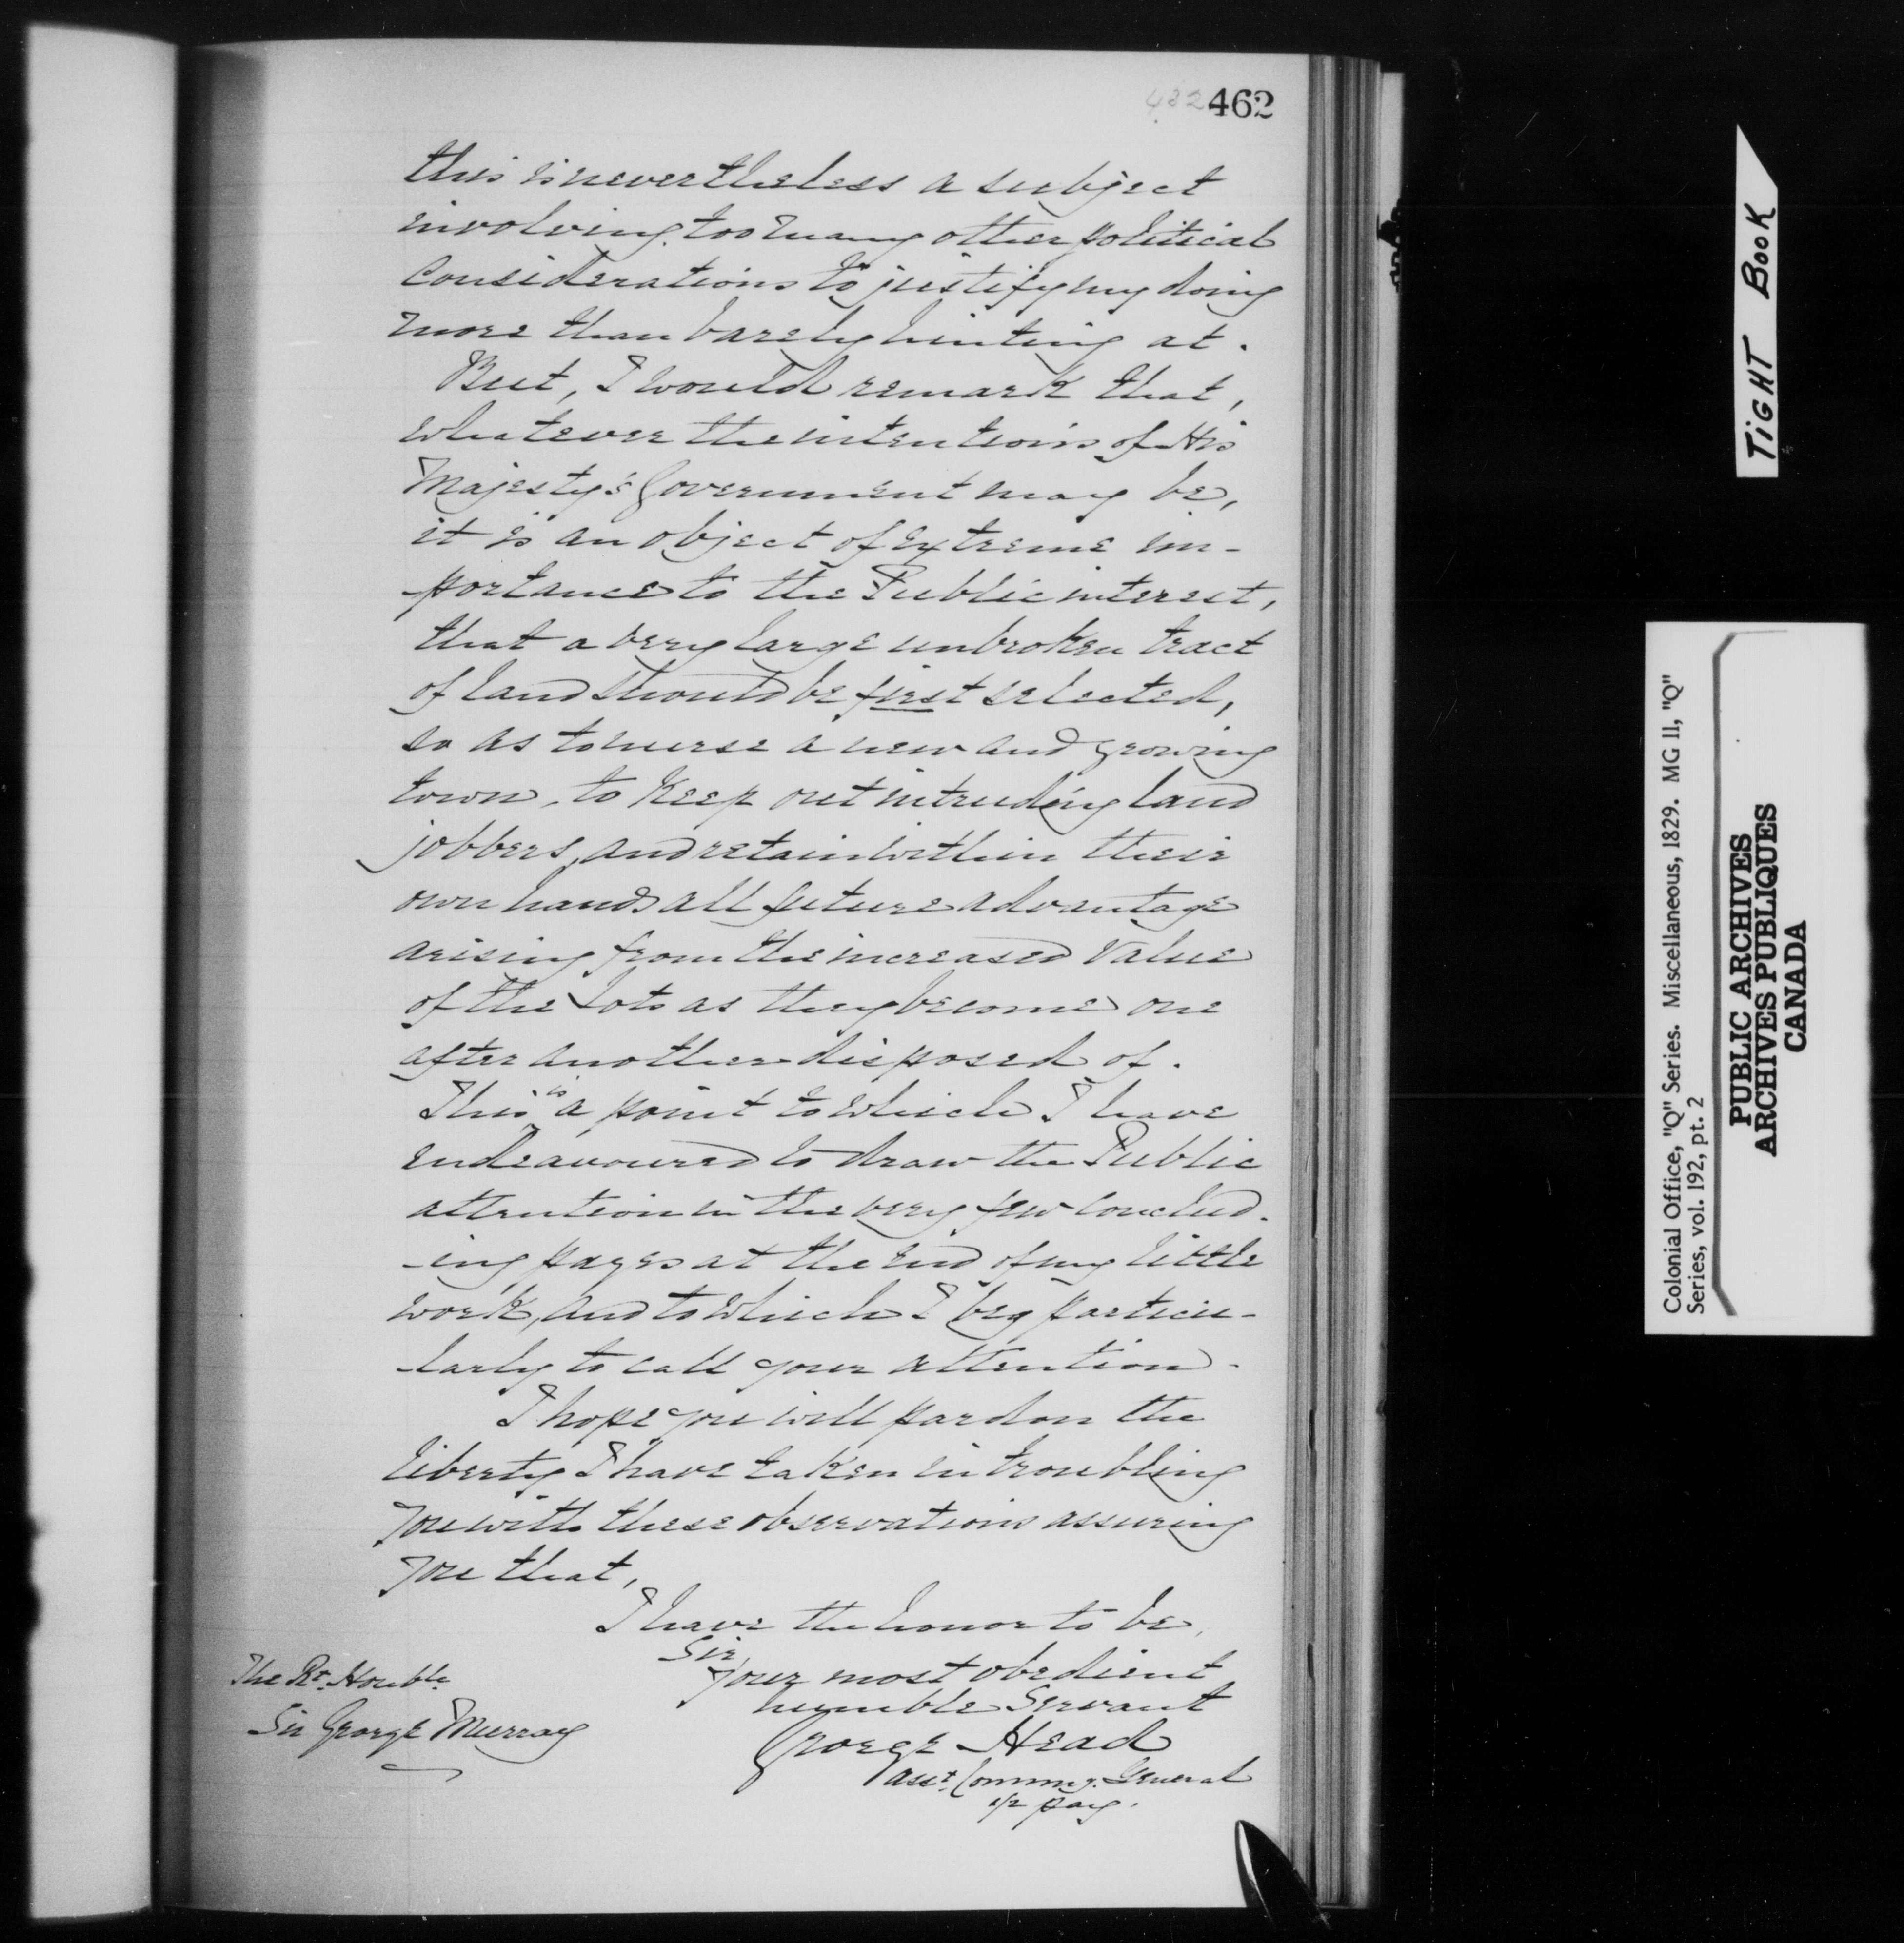 482 462
this is nevertheless a subject
involving too many other political
Considerations to justify my doing
more than barely hinting at.
But, I would remark that,
whatever the intentions of His
Majesty's Government may be,
it is an object of extreme im-
-portance to the Public interest,
that a very large unbroken tract
of land should be first selected,
so as to nurse a new and growing
town, to keep out intruding land
jobbers, and retain within their
own hands all future advantage
arising from the increased value
of the Lots as they become one
after another disposed of.
This is a point to which I have
endeavoured to draw the Public
attention in the very few conclud-
-ing pages at the end of my little
work, and to which I beg particu-
-larly to call your attention.
I hope you will pardon the
liberty I have taken in troubling
you with these observations assuring
you that,
I have the honor to be,
Sir
Your most obedient
humble Servant
George Head
Asst. Commy. General
1/2 pay.
The Rt. Honble.
Sir George Murray
TIGHT BOOK
Colonial Office, "Q" Series. Miscellaneous, 1829. MG 11, "Q"
Series, vol. 192, pt. 2
PUBLIC ARCHIVES
ARCHIVES PUBLIQUES
CANADA